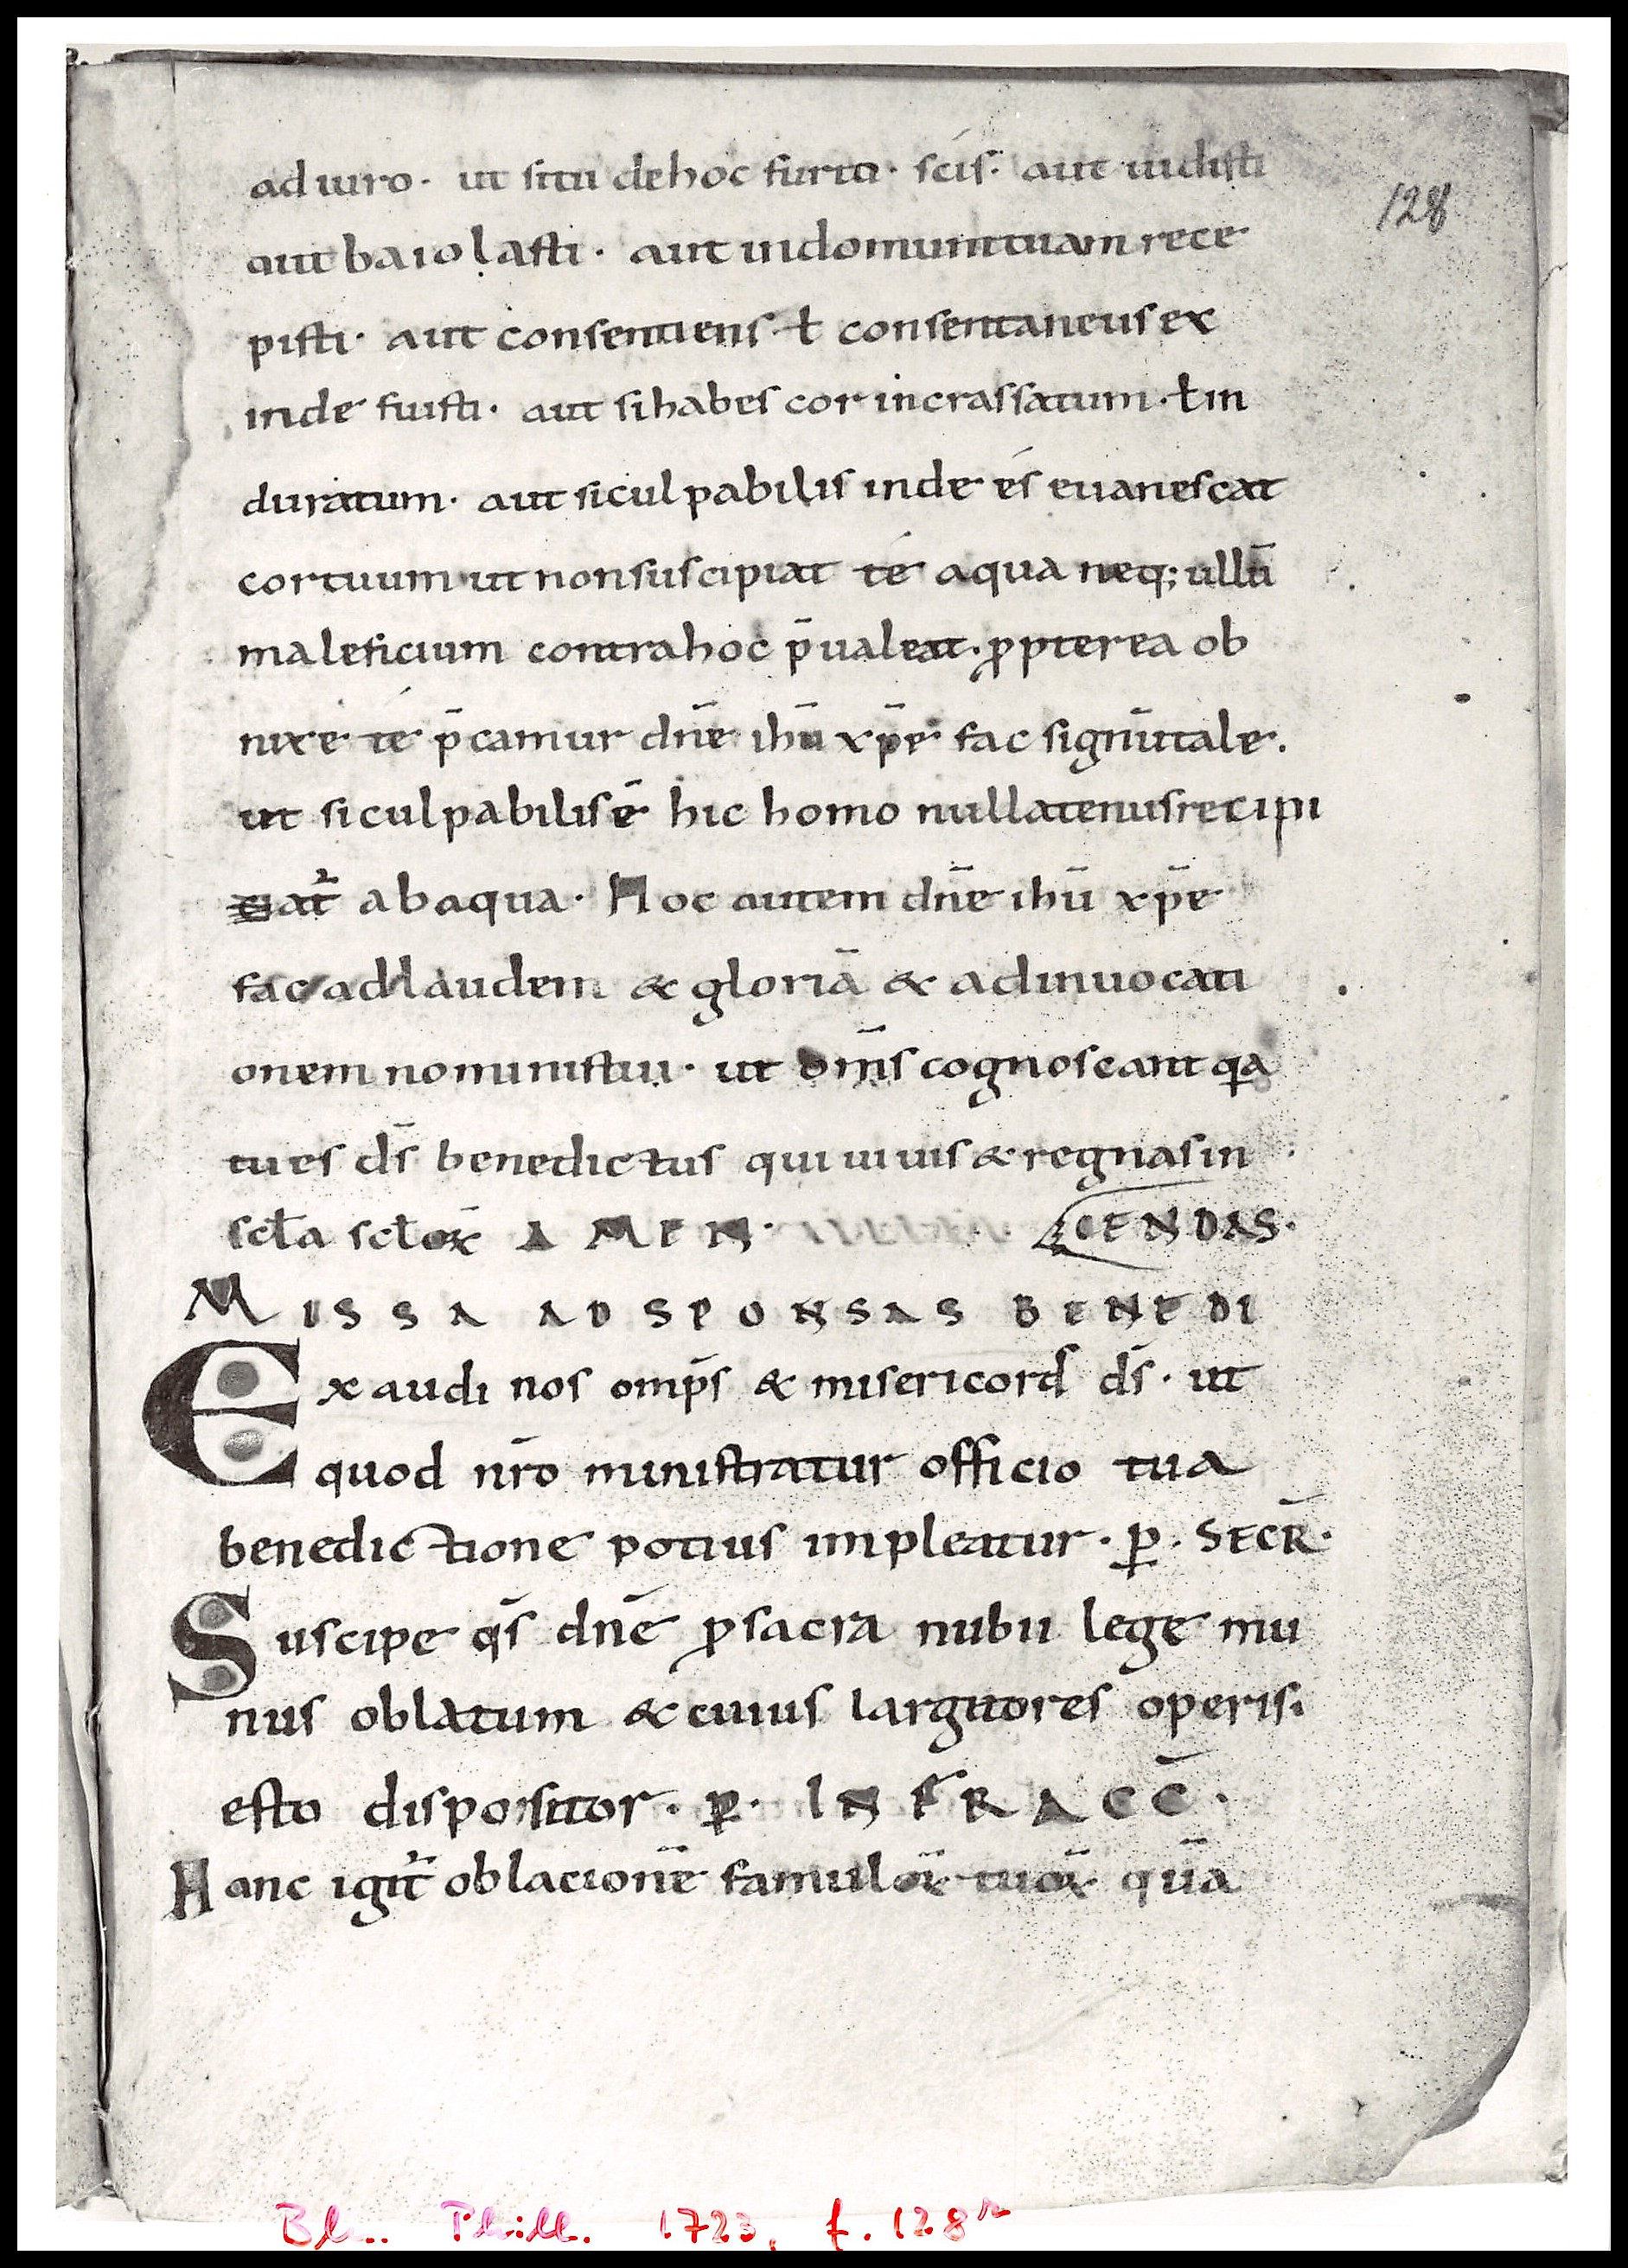 128
ad iuro. ut situ dehoc furto. scis. aut uidisti
aut baiolasti. aut indomumtuam rece
pisti. aut consentiens ƚ consentaneus ex
inde fuisti. aut sihabes cor incrassatum. ƚ in
duratum. aut siculpabilis inde és euanescat
cortuum ut nonsuscipiat té aqua neq; ullū
maleficium contrahoc p̄ualeat. ꝓpterea ob
nixe té p̄camur dn̄e ihū xp̄e fac signū tale.
ut siculpabilis ē hic homo nullatenusrecipi
at᷑ abaqua. Hoc autem dn̄e ihū xp̄e
fac ad laudem & gloriā & adinuocati
onem noministui. ut om̄s cognoscant qa
tu es ds̄ benedictus qui uiuis & regnasin
scƚa scƚoꝝ AMEN. CENDAS.
MISSA AD SPONSAS BENEDI
Exaudi nos omp̄s & misericord ds̄. ut
quod nr̄o ministratur officio tua
benedictione potius impleatur. ꝑ. SECR̄.
Suscipe qs̄ dn̄e ꝓsacra nubii lege mu
nus oblatum & cuius largitores operis.
esto dispositor. ꝑ. INFRA CC̄.
Hanc igit᷑ oblacionē famuloꝝ tuoꝝ quā
Bln. Phill. 1723, f. 128r